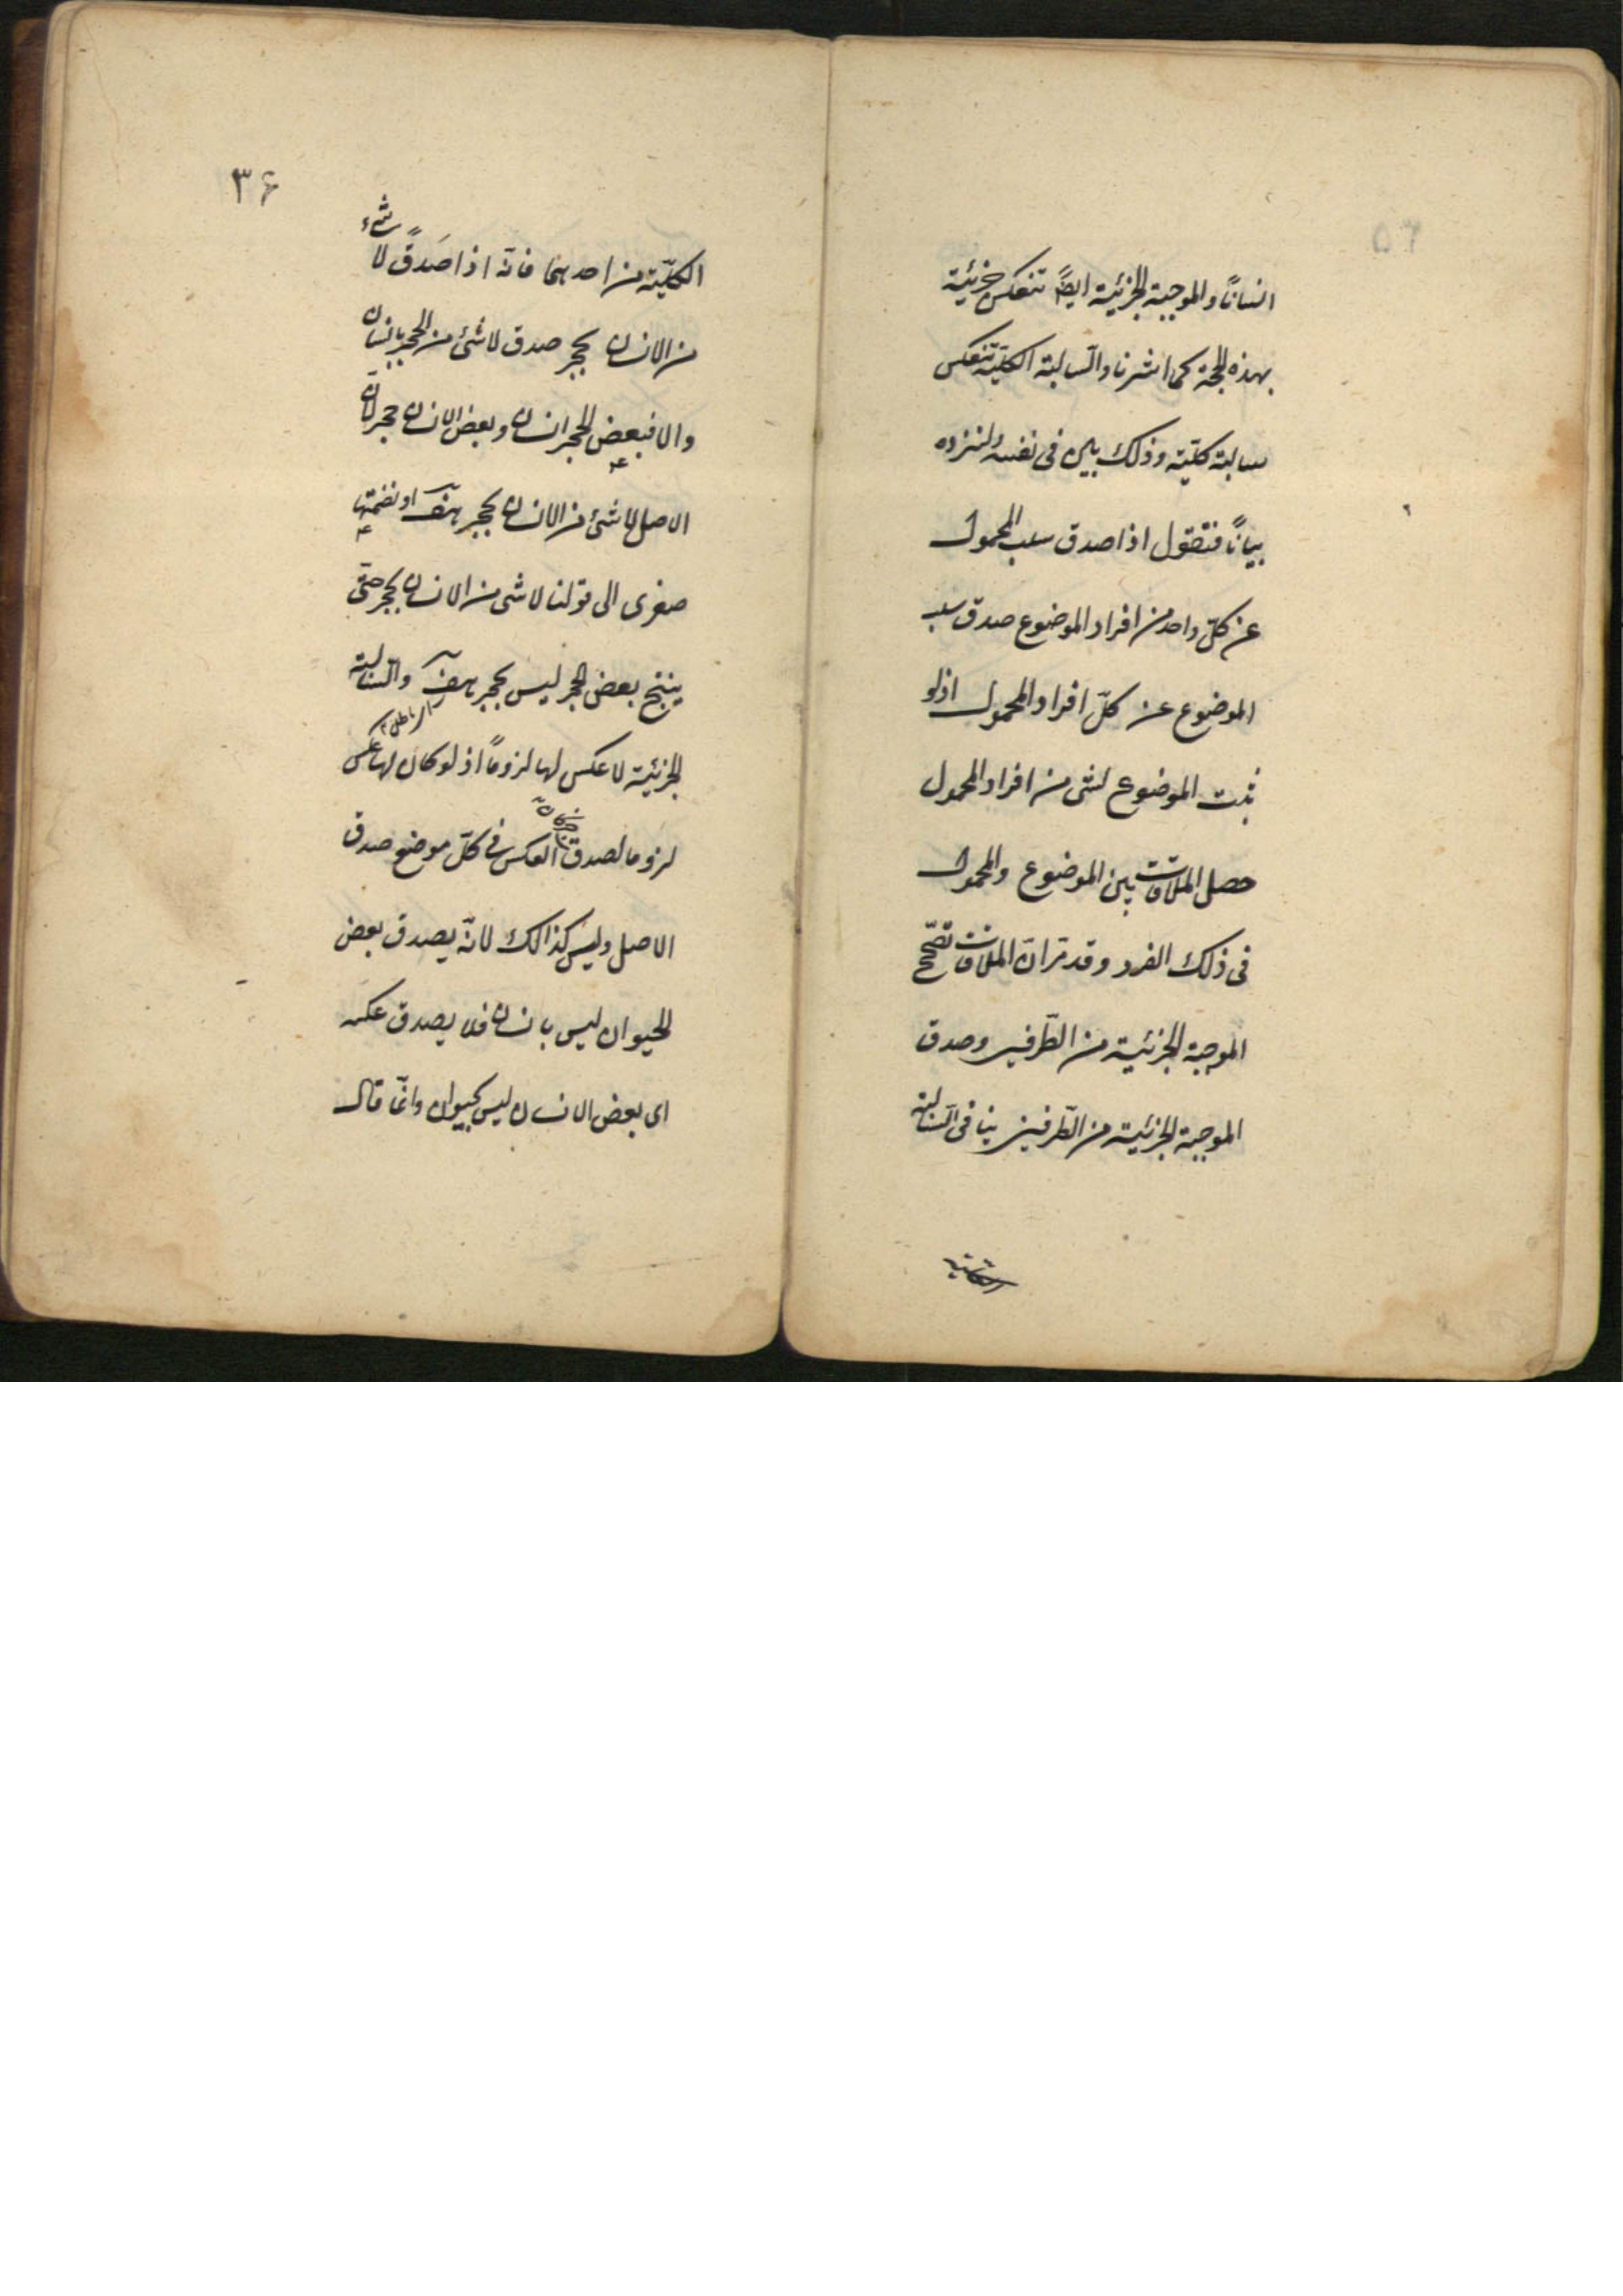 انسانًا والموجبة الجزئية ايضًا تنعكس جزئية
بهذه الحجة كما اشرنا والسّالبة الكليّة تنعكس
سالبة كليّة وذلك بيّن فى نفسه ولنزده
بيانًا فنقول اذا صدق سلب المحمول
عن كلّ واحد من افراد الموضوع صدق سلب
الموضوع عن كلّ افراد المحمول اذ لو
ثبت الموضوع لشئ من افراد المحمول
حصل الملاقات بين الموضوع والمحمول
فى ذلك الفرد وقد مرّ انّ الملاقات تصحّح
الموجبة الجزئية من الطّرفين وصدق
الموجبة الجزئية من الطّرفين ينافى السّالبة
الكليّة
٣۶
الكليّة من احدهما فانّه اذا صَدقَ لا شئ
من الانسان بحجر صدق لا شئ من الحجر بانسان
والا فبعض الحجر انسان وبعض الانسان حجر كان
الاصل لا شئ من الانسان بحجر هف او نضمّها
صغرى الى قولنا لا شئ من الانسان بحجر حتى
ينتج بعض الحجر ليس بحجر هف والسّالبة
اى باطل
الجزئية لا عكس لها لزومًا اذ لو كان لها عكس
لزوما لصدق العكس فى كلّ موضع صدق
الاصل وليس كذالك لانّه يصدق بعض
الحيوان ليس بانسان فلا يصدق عكسه
اى بعض الانسان ليس بحيوان وانّما قال